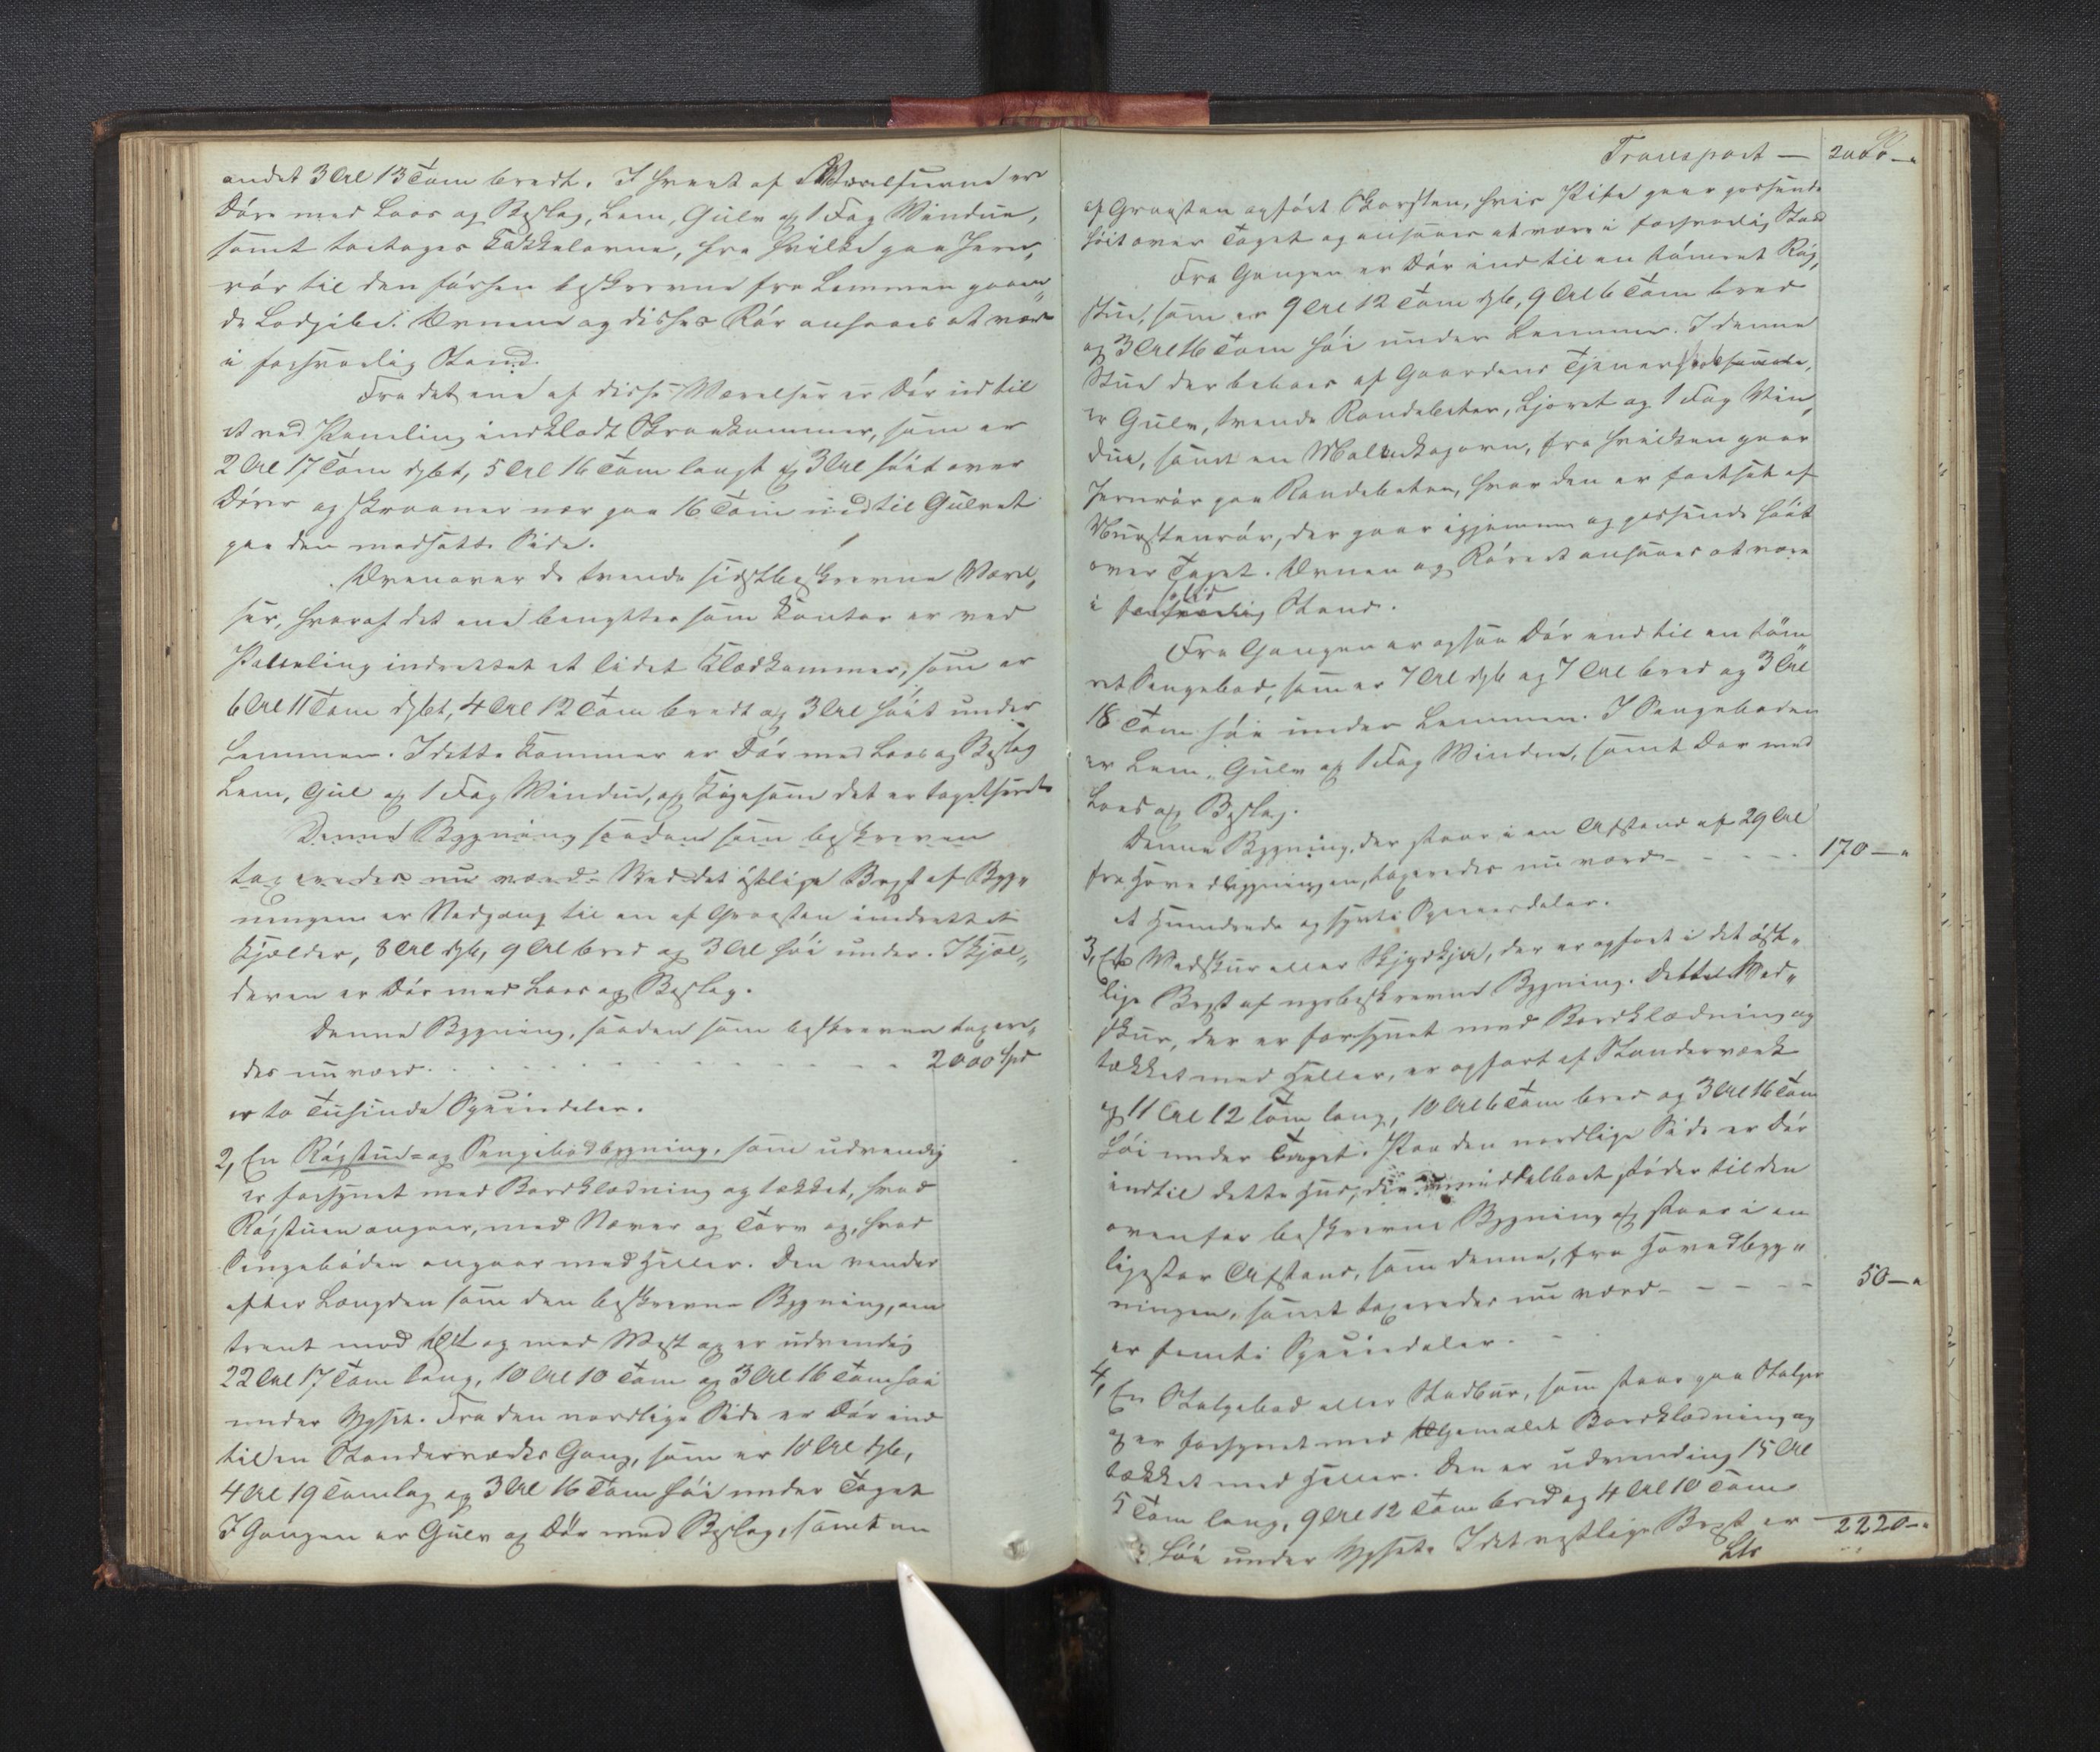 andet 3 Al 13 Tom bredt. I hvert af Værelserne er
Døre med Laas og Beslag, Lem, Gulv og 1 Fag Vindue,
samt toetages Kakkelovne, fra hvilke gaa Jern,
rør til den førhen beskrevne fra Lemmen gaaen„
de Lodpibe. Ovnene og disses Rør ansaaes at være
i forsvarlig Stand.
Fra det ene af disse Værelser er Dør ud til
et ved Paneling indklædt Skraakammer, som er
2 Al 17 Tom dybt, 5 Al 16 Tom langt og 3 Al høit over
Døren og skraaner ner paa 16 Tom ind til Gulvet
paa den modsatte Side.
Ovenover de tvende sidstbeskrevne Værel„
ser, hvoraf det ene benyttes som Kontor er ved
Paneling indrettet et lidet Klædkammer, som er
6 Al 11 Tom dybt, 4 Al 12 Tom bredt og 3 Al høit under
Lemmen. I dette Kammer er Dør med Laas og Beslag
Lem, Gul og 1 Fag Vindue, og ligesom det er
Denne Bygning saadan som beskreven
taxeredes nu værd. Ved det østlige Bryst af Byg„
ningen er Nedgang til en af Graasten indrettet
Kjælder, 8 Al dyb, 9 Al bred og 3 Al høi under. I Kjæl„
deren er Dør med Laas og Beslag.
Denne Bygning, saadan som beskreven taxere„
des nu værd. - - - - - - - - 2000 Spd
er to Tusinde Speciedaler.
2, En Røgstue= og Sengebodbygning, som udvendig
er forsynet med Bordklædning og tækket, hvad
Røgstuen angaaer, med Næver og Törv og, hvad
Sengeboden angaaer med Heller. Den vender
efter Længden som den beskrevne Bygning, om
trent mod Øst og mod Vest og er udvendig
22 Al 17 Tom lang, 10 Al 10 Tom og 3 Al 16 Tom høi
under Ufset. Fra den nordlige Side er Dør ind
til en Standerværks Gang, som er 10 Al dyb,
4 Al 19 Tom lag og 3 Al 16 Tom høi under Taget
I Gangen er Gulv og Dør med Beslag, samt en
Transport — 2000 —„
af Graasten opført Skorsten, hvis Pibe gaar passende
høit over Taget og ansaaes at være i forsvarlig Stand
Fra Gangen er Dør ind til en tömret Røg,
stue, som er 9 Al 12 Tom dyb, 9 Al 6 Tom bred
og 3 Al 16 Tom høi under Lemmen. I denne
Stue der beboes af Gaardens Tjenerskab,
er Gulv, tvende Randebeter, Ljoret og 1 Fag Vin„
due, samt en Malmkogovn, fra hvilken gaar
Jernrør paa Randebeten, hvor den er fortsat af
Murstenrør, der gaar igjennem og passende høit
over Taget. Ovnen og Røret ansaaes at være
i solid Stand.
Fra Gangen er ogsaa Dør ind til en töm„
ret Sengebod, som er 7 Al dyb og 7 Al bred og 3 Al
18 Tom høi under Lemmen. I Sengeboden
er Lem, Gulv og 1 Fag Vindue, samt Dør med
Laas og Beslag.
Denne Bygning, der staar i en Afstand af 29 Al
fra Hovedbygningen, taxeredes nu værd - - - - 170 —„
et Hundrede og sytti Speciesdaler.
3, Et Vedskur eller Skjydkja, der er opført i det øst„
lige Bryst af nysbeskrevne Bygning. Dette Ved„
skur, der er forsynet med Bordklædning og
tækket med Heller, er opført af Standerværk
og 11 Al 12 Tom lang, 10 Al 6 Tom bred og 3 Al 16 Tom
høi under Taget. Paa den nordlige Side er Dør
indtil dette Hus, der umiddelbart støder til den
ovenfor beskrevne Bygning og staar i en
ligestor Afstand, som denne, fra Hovedbyg„
ningen, samt taxeredes nu værd - - - - - 50 —„
er femti Speciedaler.
4, En Stolpebod eller Stadbur, som staar paa Stolper
og er forsynet med Bordklædning og
tækket med Heller. Den er udvendig 15 Al
5 Tom lang, 9 Al 12 Tom bred og 4 Al 10 Tom
høi under Ufset. I det vestlige Bryst er 2220 —„
Lts